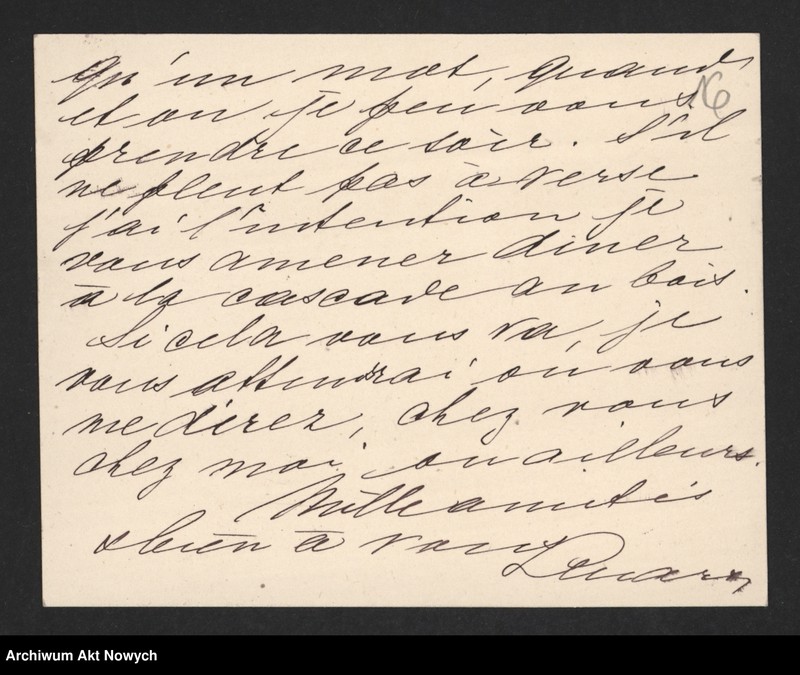 qu'un mot, quand
et ou je peu vous
16
prendre ce soir. S'il
ne pleut pas à verse
j'ai l'intention je
vous amener diner
à la cascade au bois.
Si cela vous va, je
vous attendrai où vous
me direz, chez vous
chez moi, ou ailleurs.
Mille amitiés
& bien à vous
Archiwum Akt Nowych